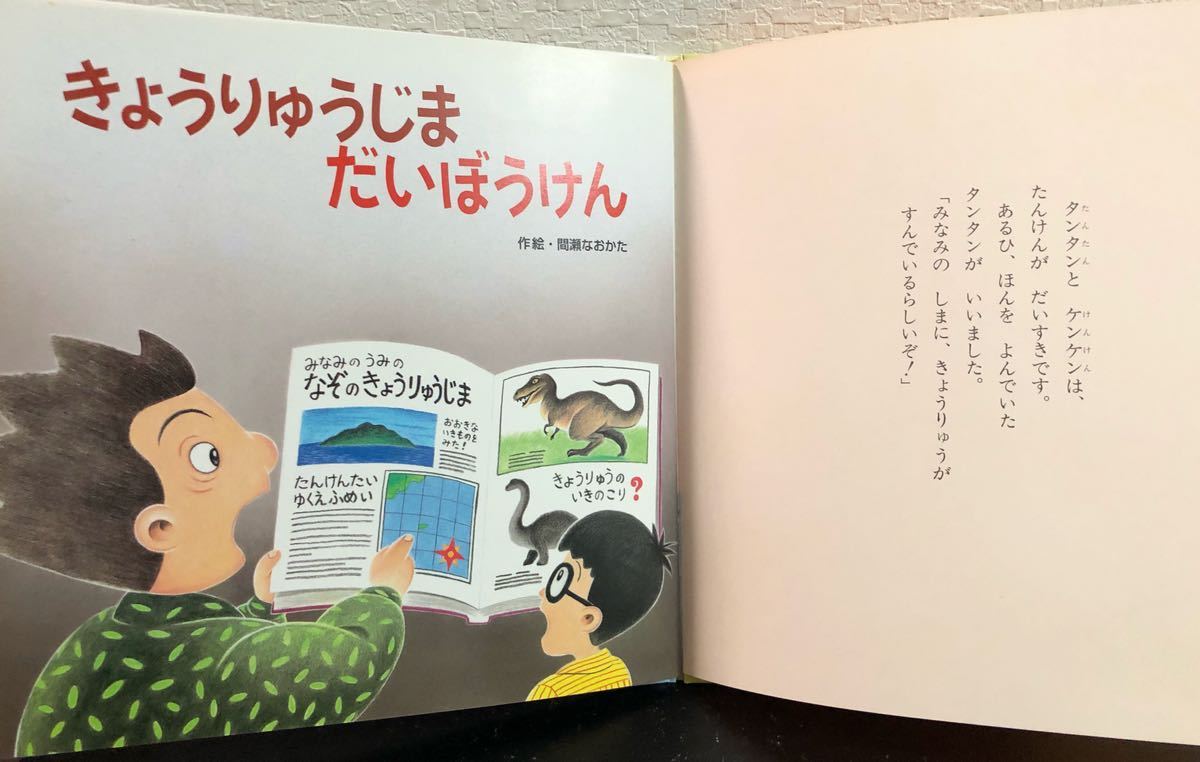 きょうりゅうじま
だいぼうけん
作絵・間瀬なおかた
みなみの うみの
なぞのきょうりゅうじま
おおきな
いきものを
みた!
たんけんたい
ゆくえふめい
きょうりゅうの
いきのこり?
タンタンと ケンケンは、
たんたん けんけん
たんけんが だいすきです。
あるひ、ほんを よんでいた
タンタンが いいました。
「みなみの しまに、きょうりゅうが
すんでいるらしいぞ!」